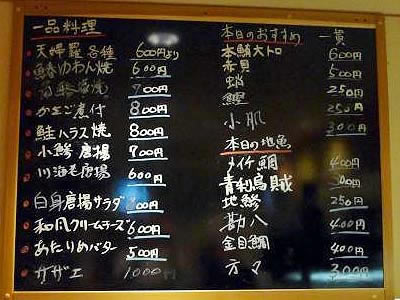 一品料理
天婦羅各種 600円より
600円
700円
煮付 800円
鮭ハラス焼 800円
小鯵唐揚 700円
川海老唐揚 600円
白身唐揚サラダ
和風クリームチーズ 600円
あたりめバター 500円
サザエ 1000円
本日のおすすめ 一貫
本鮪大トロ 600円
赤貝 500円
蛸 250円
250円
小肌 300円
本日の地魚
メイチ鯛 400円
青利烏賊
地鯵 250円
勘八 400円
金目鯛 400円
300円